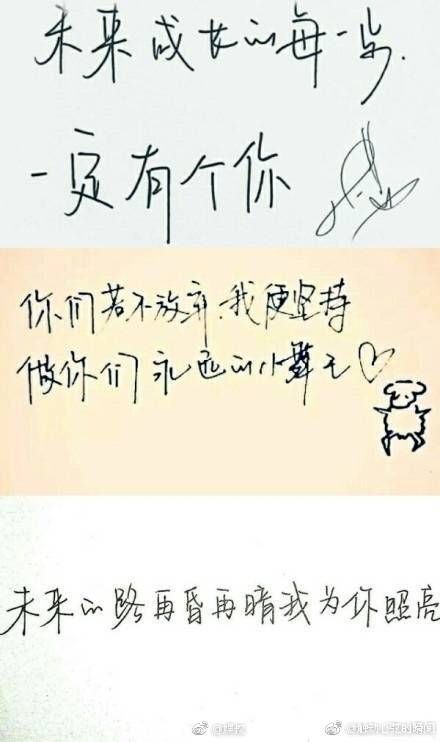 未来成长的每一步.
一定有个你
你们若不放弃.我便坚持
做你们永远的小舞王♡
未来的路再昏再暗我为你照亮